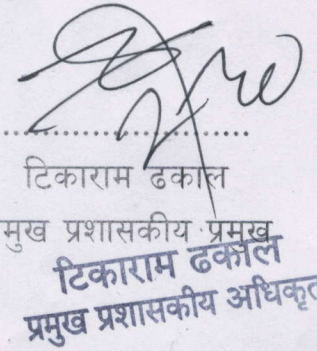 टिकाराम ढकाल
मुख प्रशासकीय प्रमुख
टिकाराम ढकाल
प्रमुख प्रशासकीय अधिकृत